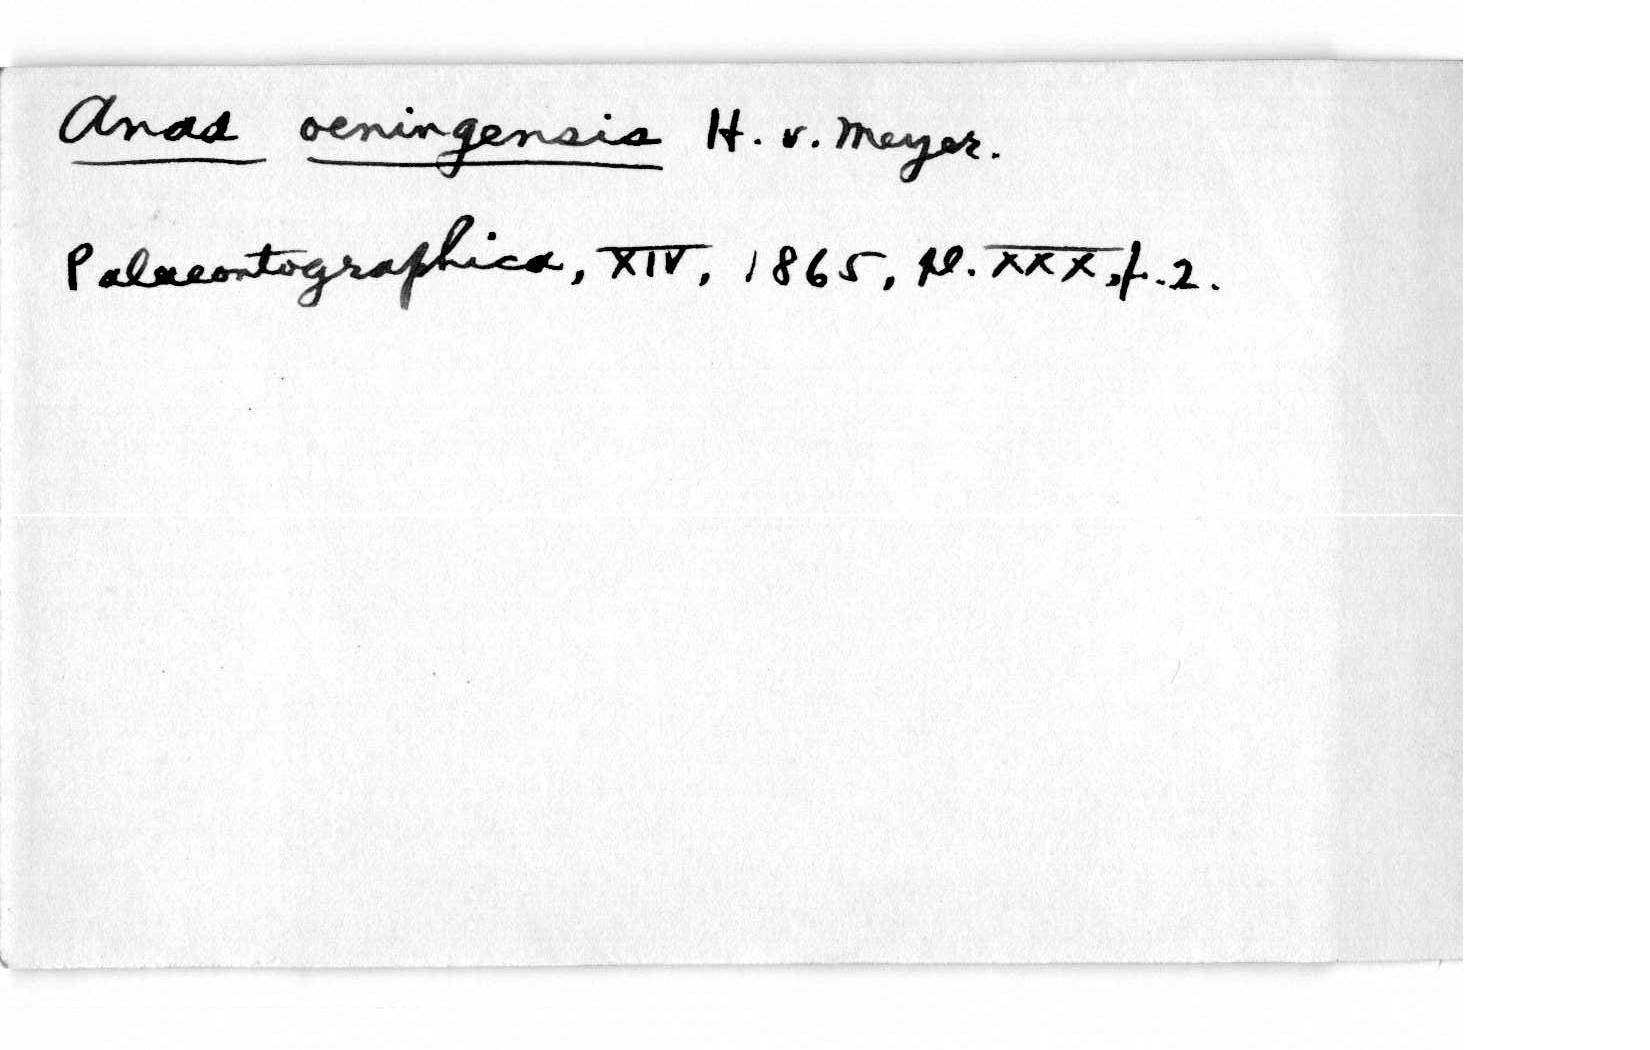 Anas oeningensis H. v. Meyer.
Palaeontographica, XIV, 1865, pl. XXX, f. 2.